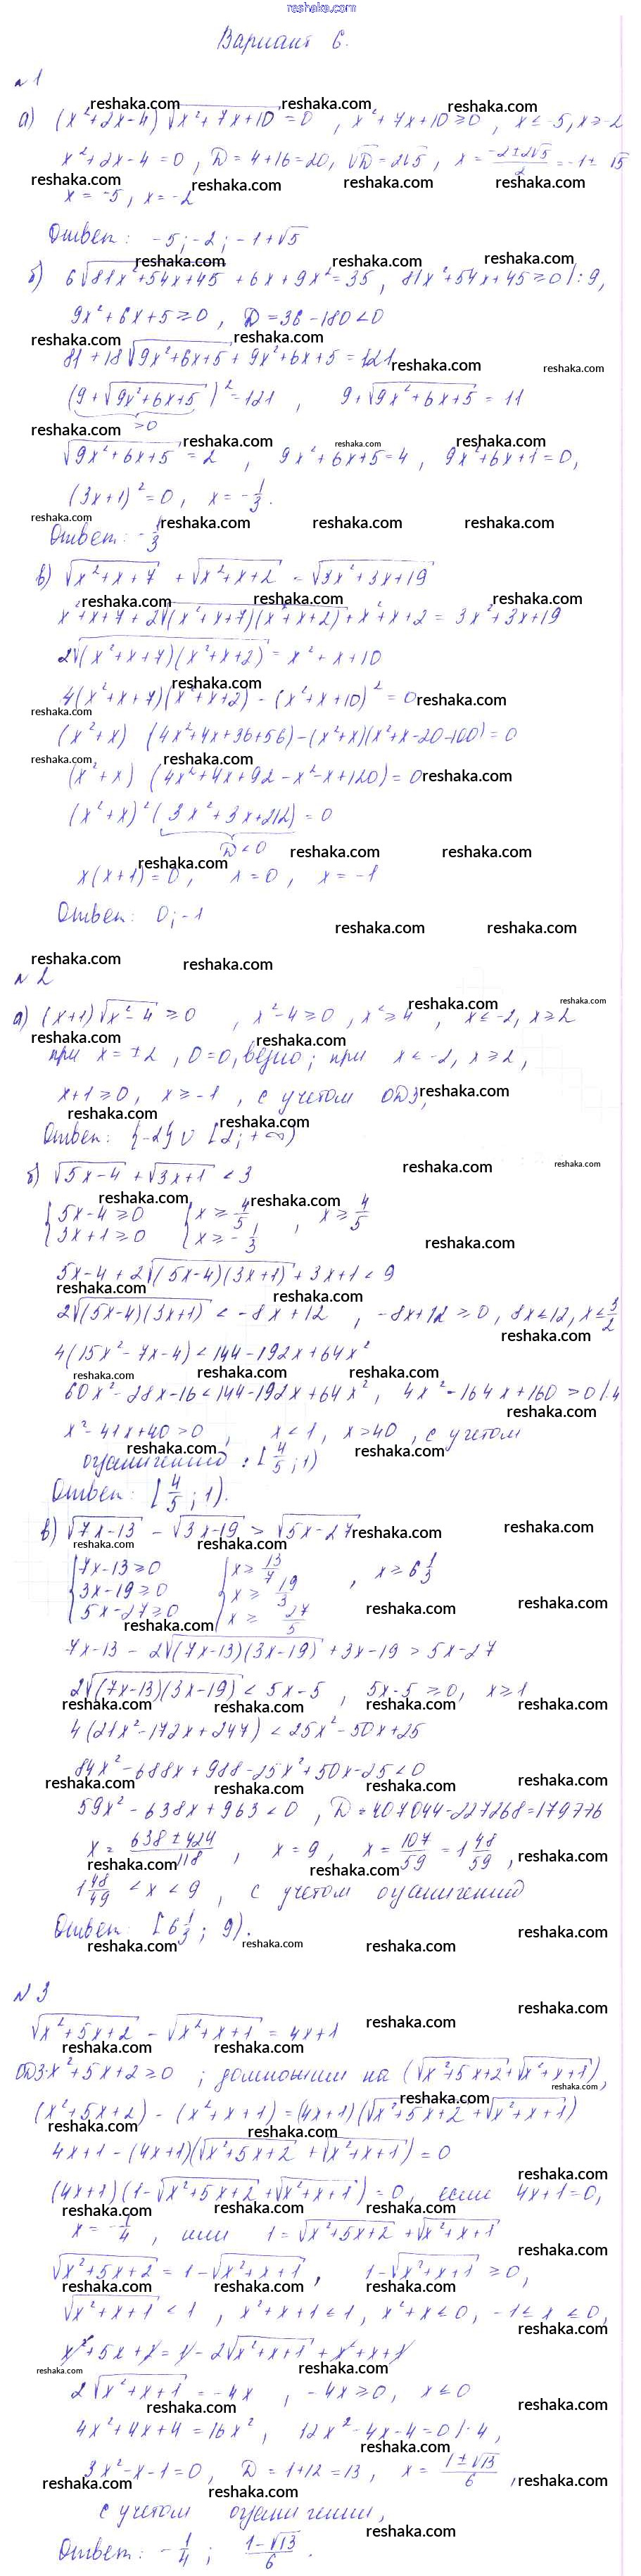 reshaka.com
Вариант 6.
№1
а) (x²+2x-4)√(x²+7x+10) = 0 , x²+7x+10 ≥ 0 , x ≤ -5, x ≥ -2
x²+2x-4=0 , D=4+16=20, √D=2√5 , x = (-2±2√5)/2 = -1± √5
x = -5 , x = -2
Ответ: -5; -2; -1+√5
б) 6√(81x²+54x+45) + 6x + 9x² = 35 , 81x²+54x+45 ≥ 0 |:9,
9x²+6x+5 ≥ 0 , D = 36-180 < 0
81+18√(9x²+6x+5) + 9x²+6x+5 = 121
(9+√(9x²+6x+5))² = 121 , 9+√(9x²+6x+5) = 11
>0
√(9x²+6x+5) = 2 , 9x²+6x+5=4 , 9x²+6x+1=0,
(3x+1)²=0 , x = -1/3.
Ответ: -1/3
в) √(x²+x+7) + √(x²+x+2) = √(3x²+3x+19)
x²+x+7+2√((x²+x+7)(x²+x+2))+x²+x+2 = 3x²+3x+19
2√((x²+x+7)(x²+x+2)) = x²+x+10
4(x²+x+7)(x²+x+2) - (x²+x+10)² = 0
(x²+x) (4x²+4x+36+56)-(x²+x)(x²+x-20-100) = 0
(x²+x) (4x²+4x+92-x²-x+120) = 0
(x²+x)²(3x²+3x+212) = 0
D<0
x(x+1)=0, x=0, x=-1
Ответ: 0; -1
№2
а) (x+1)√(x²-4) ≥ 0 , x²-4 ≥ 0 , x² ≥ 4 , x ≤ -2, x ≥ 2
при x=±2 , 0=0, верно; при x<-2, x ≥ 2,
x+1 ≥ 0, x ≥ -1 , с учетом ОДЗ,
Ответ: {-2} ∪ [2; +∞)
б) √(5x-4) + √(3x+1) < 3
{5x-4 ≥ 0 {x ≥ 4/5 , x ≥ 4/5
{3x+1 ≥ 0 {x ≥ -1/3
5x-4+2√((5x-4)(3x+1))+3x+1 < 9
2√((5x-4)(3x+1)) < -8x+12 , -8x+12 ≥ 0, 8x ≤ 12, x ≤ 3/2
4(15x²-7x-4) < 144-192x+64x²
60x²-28x-16 < 144-192x+64x² , 4x²-164x+160 > 0 |:4
x²-41x+40 > 0 , x<1, x>40 , с учетом
ограничений : [4/5; 1)
Ответ: [4/5; 1).
в) √(7x-13) - √(3x-19) > √(5x-27)
{7x-13 ≥ 0 {x ≥ 13/7
{3x-19 ≥ 0 {x ≥ 19/3 , x ≥ 6 1/3
{5x-27 ≥ 0 {x ≥ 27/5
7x-13 - 2√((7x-13)(3x-19)) + 3x-19 > 5x-27
2√((7x-13)(3x-19)) < 5x-5 , 5x-5 ≥ 0, x ≥ 1
4(21x²-172x+247) < 25x²-50x+25
84x²-688x+988-25x²+50x-25 < 0
59x²-638x+963 < 0 , D = 407044-227268=179776
x = (638±424)/118 , x = 9 , x = 107/59 = 1 48/59 ,
1 48/49 < x < 9 , с учетом ограничений
Ответ: [6 1/3; 9).
№3
√(x²+5x+2) - √(x²+x+1) = 4x+1
ОДЗ: x²+5x+2 ≥ 0 ; домножим на (√(x²+5x+2)+√(x²+x+1)),
(x²+5x+2) - (x²+x+1) = (4x+1)(√(x²+5x+2)+√(x²+x+1))
4x+1 - (4x+1)(√(x²+5x+2)+√(x²+x+1)) = 0
(4x+1)(1-√(x²+5x+2)+√(x²+x+1)) = 0, если 4x+1=0,
x = -1/4 , или 1=√(x²+5x+2)+√(x²+x+1)
√(x²+5x+2) = 1-√(x²+x+1) , 1-√(x²+x+1) ≥ 0,
√(x²+x+1) ≤ 1 , x²+x+1 ≤ 1, x²+x ≤ 0, -1 ≤ x ≤ 0,
x²+5x+2 = 1 - 2√(x²+x+1) + x²+x+1
2√(x²+x+1) = -4x , -4x ≥ 0, x ≤ 0
4x²+4x+4=16x² , 12x²-4x-4=0 |:4,
3x²-x-1=0, D=1+12=13 , x = (1±√13)/6 ,
с учетом ограничений,
Ответ: -1/4 ; (1-√13)/6 .